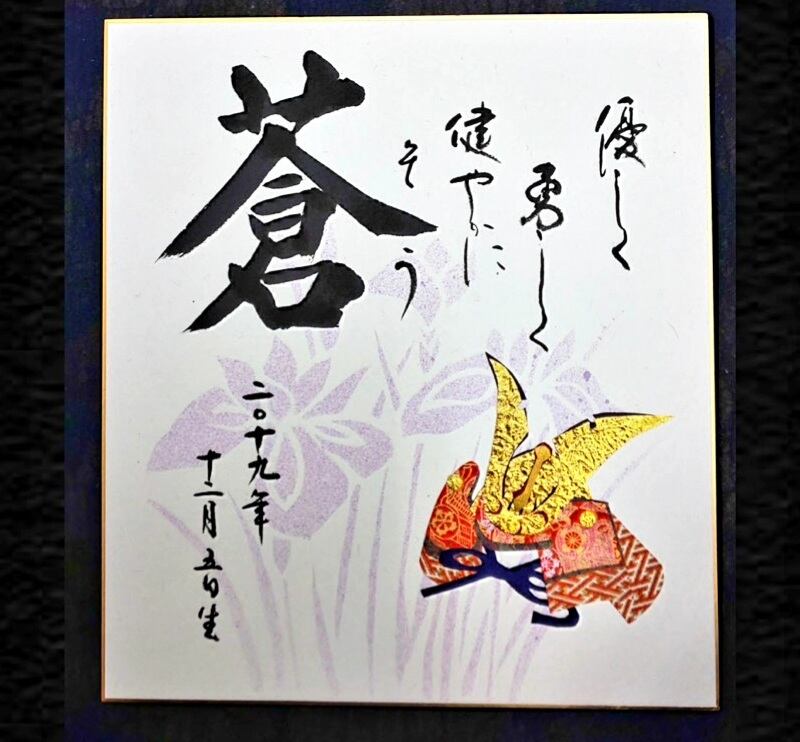 優しく
勇しく
健やかに
そう
蒼
二〇十九年
十二月五日生